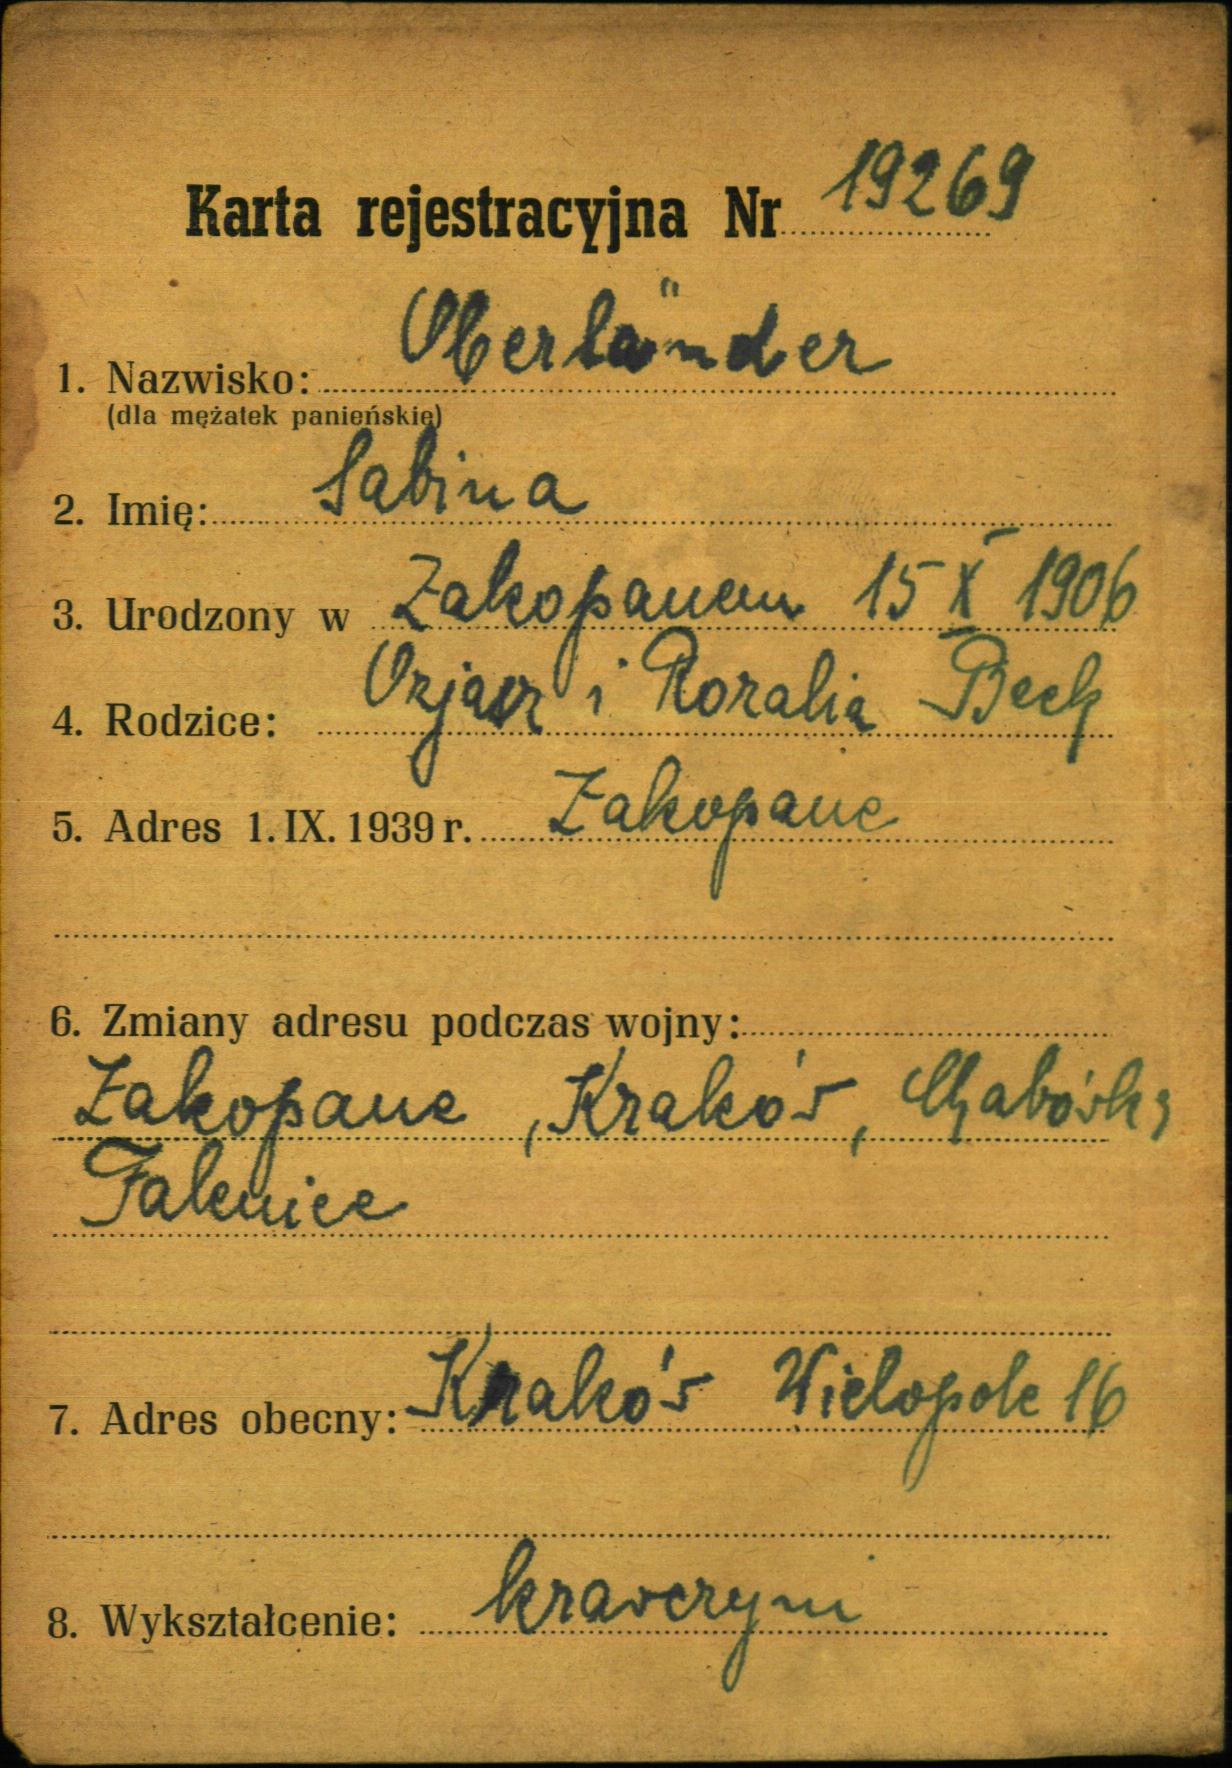 Karta rejestracyjna Nr 19269
1. Nazwisko: Oberländer
(dla mężatek panieńskie)
2. Imię: Sabina
3. Urodzony w Zakopanem 15 X 1906
4. Rodzice: Ozjasz i Rozalia Beck
5. Adres 1. IX. 1939 r. Zakopane
6. Zmiany adresu podczas wojny:
Zakopane, Kraków, Chabówka
Falenice
7. Adres obecny: Kraków Wielopole 16
8. Wykształcenie: krawczyni